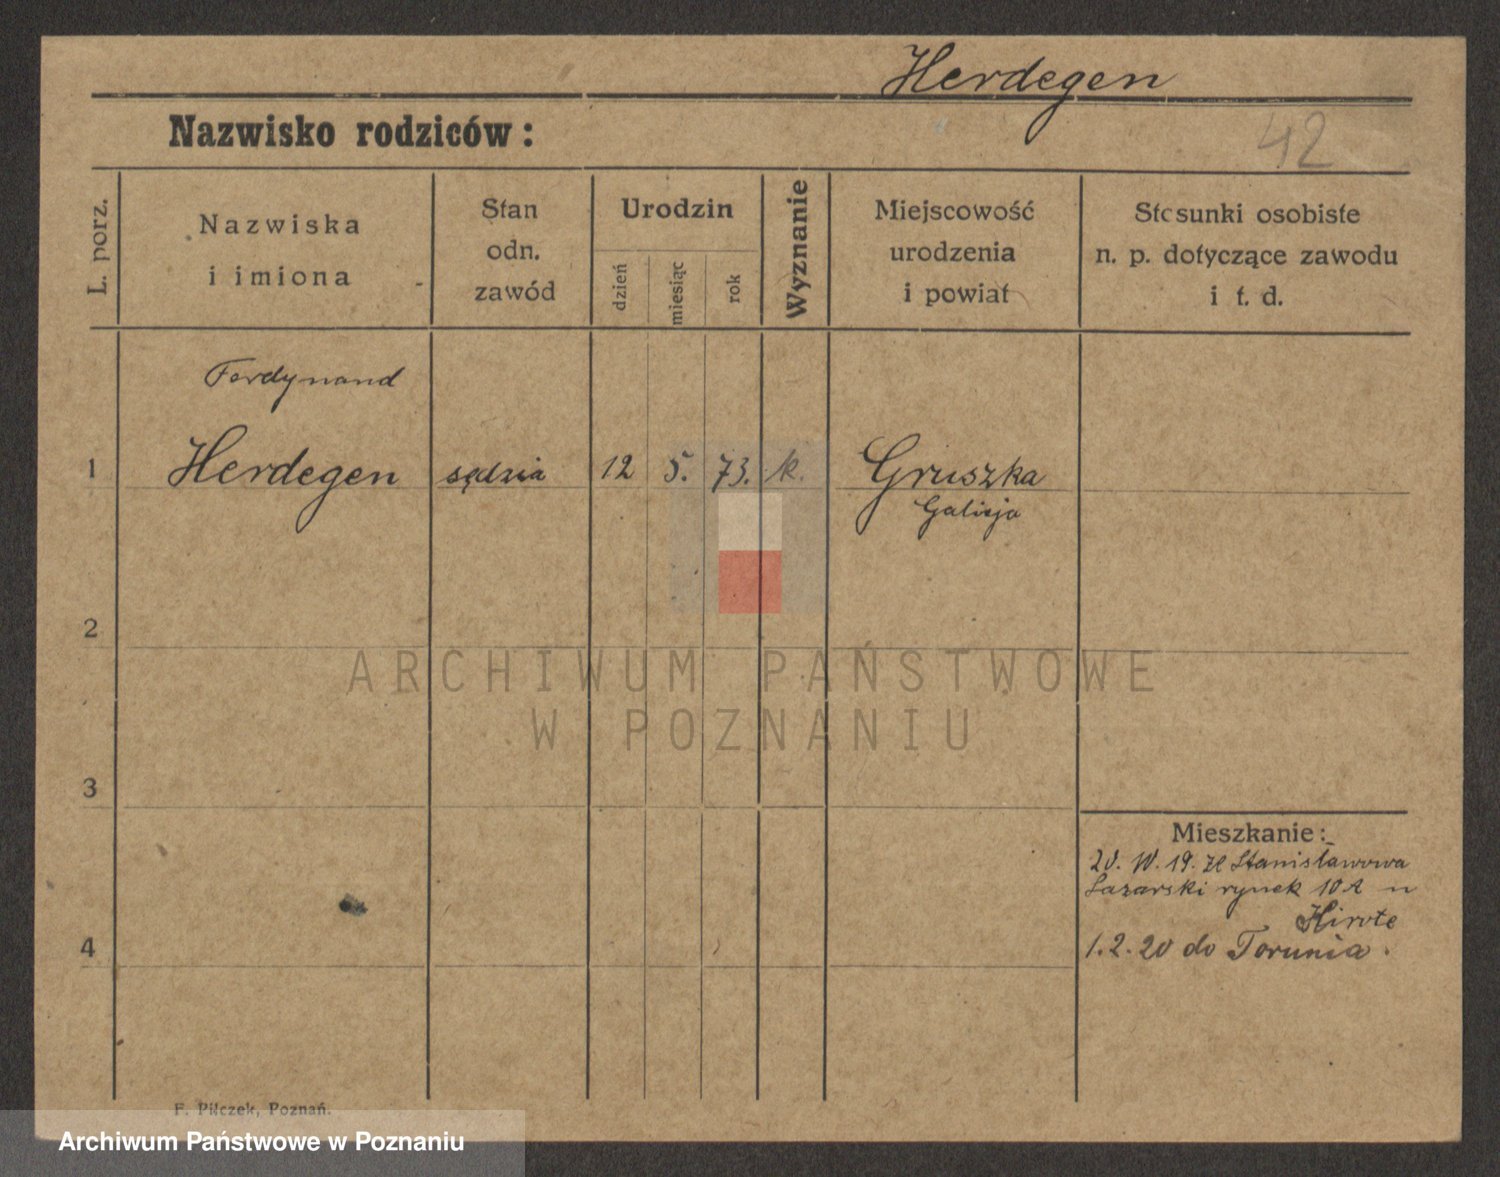 Herdegen
Nazwisko rodziców:
42
L. porz.
Nazwiska
i imiona
Stan
odn.
zawód
Urodzin
dzień
miesiąc
rok
Wyznanie
Miejscowość
urodzenia
i powiat
Stosunki osobiste
n. p. dotyczące zawodu
i t. d.
Ferdynand
1 Herdegen sędzia 12 5. 73. k. Gruszka
Galicja
2
ARCHIWUM PAŃSTWOWE
W POZNANIU
3
Mieszkanie:
20. 19. Stanisławowa
Łazarski rynek 10A u
Hirote
4 1.2.20 do Torunia.
F. Pilczek, Poznań.
Archiwum Państwowe w Poznaniu